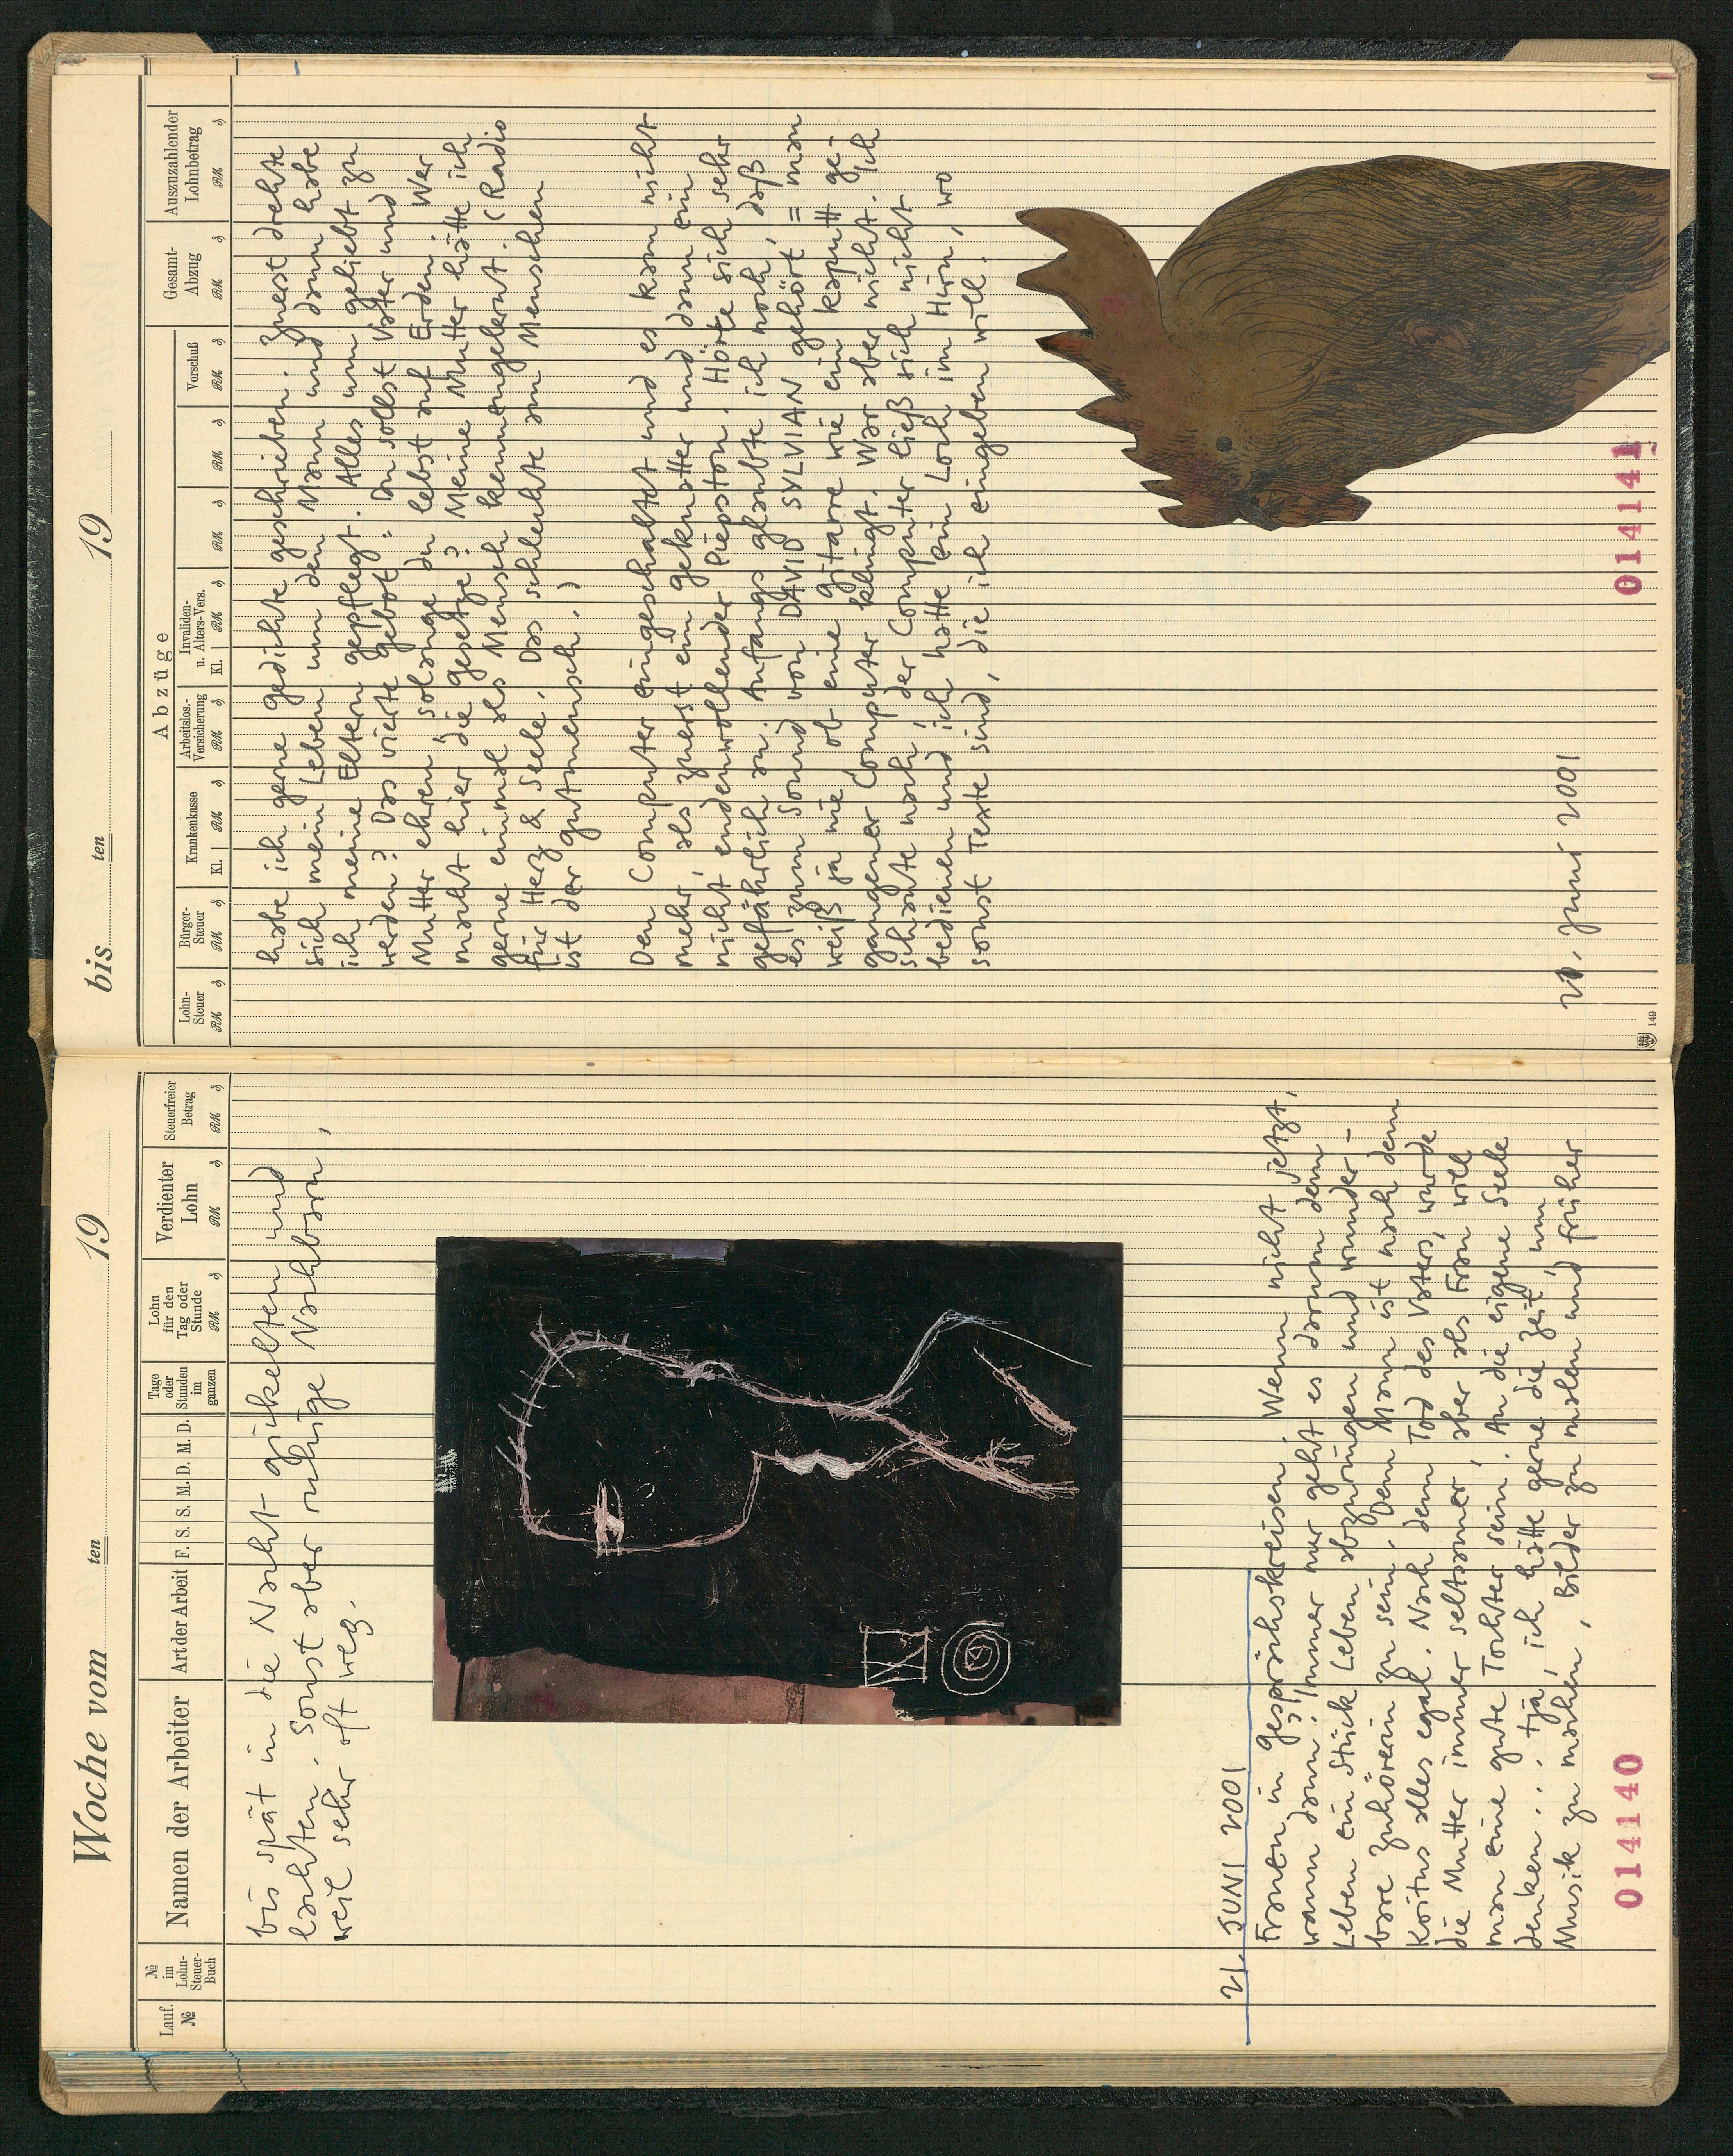 Woche vom ten 19
Lauf. №
№ im Lohn-Steuer-Buch
Namen der Arbeiter
Art der Arbeit
F. S. S. M. D. M. D.
Tage oder Stunden im ganzen
Lohn für den Tag oder Stunde RM ₰
Verdienter Lohn RM ₰
Steuerfreier Betrag RM ₰
bis spät in die Nacht gickelten und
lachten. Sonst aber ruhige Nachbarn,
weil sehr oft weg.
21. JUNI 2001
Frauen in Gesprächskreisen. Wenn nicht jetzt,
wann dann. Immer nur geht es darum dem
Leben ein Stück Leben abzuringen und wunder-
bare Zuhörerin zu sein. Dem Mann ist nach dem
Koitus alles egal. Nach dem Tod des Vaters, wurde
die Mutter immer seltsamer, aber als Frau will
man eine gute Tochter sein. An die eigene Seele
denken... tja, ich hätte gerne die Zeit, um
Musik zu machen, Bilder zu malen und früher
014140
bis ten 19
Abzüge
Lohn-Steuer RM ₰
Bürger-Steuer RM ₰
Krankenkasse Kl. RM ₰
Arbeitslos.-Versicherung RM ₰
Invaliden- u. Alters-Vers. Kl. RM ₰
RM ₰
RM ₰
Vorschuß RM ₰
Gesamt-Abzug RM ₰
Auszuzahlender Lohnbetrag RM ₰
habe ich gerne Gedichte geschrieben. Zuerst drehte
sich mein Leben um den Mann und dann habe
ich meine Eltern gepflegt. Alles um geliebt zu
werden? Das vierte Gebot: Du sollst Vater und
Mutter ehren, solange du lebst auf Erden. Wer
macht hier die Gesetze? Meine Mutter hätte ich
gerne einmal als Mensch kennengelernt. (Radio
für Herz & Seele. Das schlechte am Menschen
ist der Gutmensch.)
Den Computer eingeschaltet und es kam nicht
mehr, als zuerst ein geknatter und dann ein
nicht endenwollender Piepston. Hörte sich sehr
gefährlich an. Anfangs glaubte ich noch, daß
es zum Sound von DAVID SYLVIAN gehört = man
weiß ja nie ob eine Gitarre wie ein kaputt ge-
gangener Computer klingt. War aber nicht. Ich
schaute nach, der Computer ließ sich nicht
bedienen und ich hatte ein Loch im Hirn, wo
sonst Texte sind, die ich eingeben will.
21. Juni 2001
149
014141